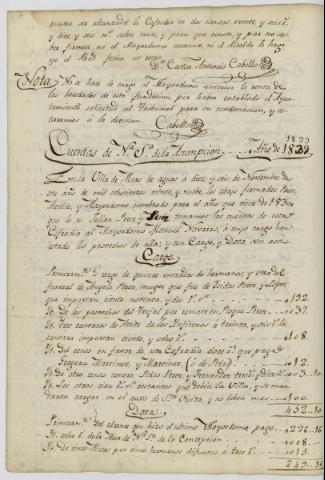 resulta se alcanzada la Cofradia en dos cientos veinte y seis r.s
y diez y seis m.s sobre cuios, y para que conste, y por no sa-
ber firmar no el Mayordomo entrante, ni el Alcalde lo hago
yo el Abad fecha ut supra
D.n Castro Antonio Cabello
Nota: No se hace de cargo el Mayordomo anterior la renta de
las heredades de esta fundacion por haber entablado el Ayun-
tamiento solicitud al Tribunal para su condonacion, y es-
taremos à la decision.
Cabello
Cuentas de N.a S.a de la Asumpcion Año de 1829
En la Villa de Muro de aguas à diez, y seis de Noviembre de
este año de mil ochocientos veinte, y nueve, los abajo firmados Abad,
Alcalde, y Mayordomo nombrado para el año que viene de 1830
que lo es Julian Perez, tomamos las cuentas de esta
Cofradia al Mayordomo Manuel Navarro, a cuyo cargo han
estado los provechos de ella; y son Cargo, y Data son así
Cargo.
Primeram.te Es cargo de quince entradas de hermanos, y otro del
funeral de Angela Perez, muger que fue de Perez, y Lopez
que importan ciento noventa, y dos r.s 192
It. de los provechos del Trujal por remate en Roque Perez 037
It. tres cantaras de Aceite de los Infirmos à treinta, y seis r.s la
cantara importan ciento, y ocho r.s 108.
It. Del censo en favor de esta Cofradia doce r.s que paga
Gregorio Martinez, y Martinez 012
It. de otro censo contra Pedro Perez, y Fernandez tres r.s, y diez m.s 003.10
It. Los otros cien r.s restantes que debía la Villa, y se man-
daron cargar en el auto de S.ta Visita, y no deben mas 100
452.10
Data
Primeram.te Del alcance que hizo el ultimo Mayordomo pago 226.16
It. ocho r.s de la Misa de N.a S.a de la Concepcion 008.
It. de cinco Misas por cinco hermanos difuntos à tres r.s 015.